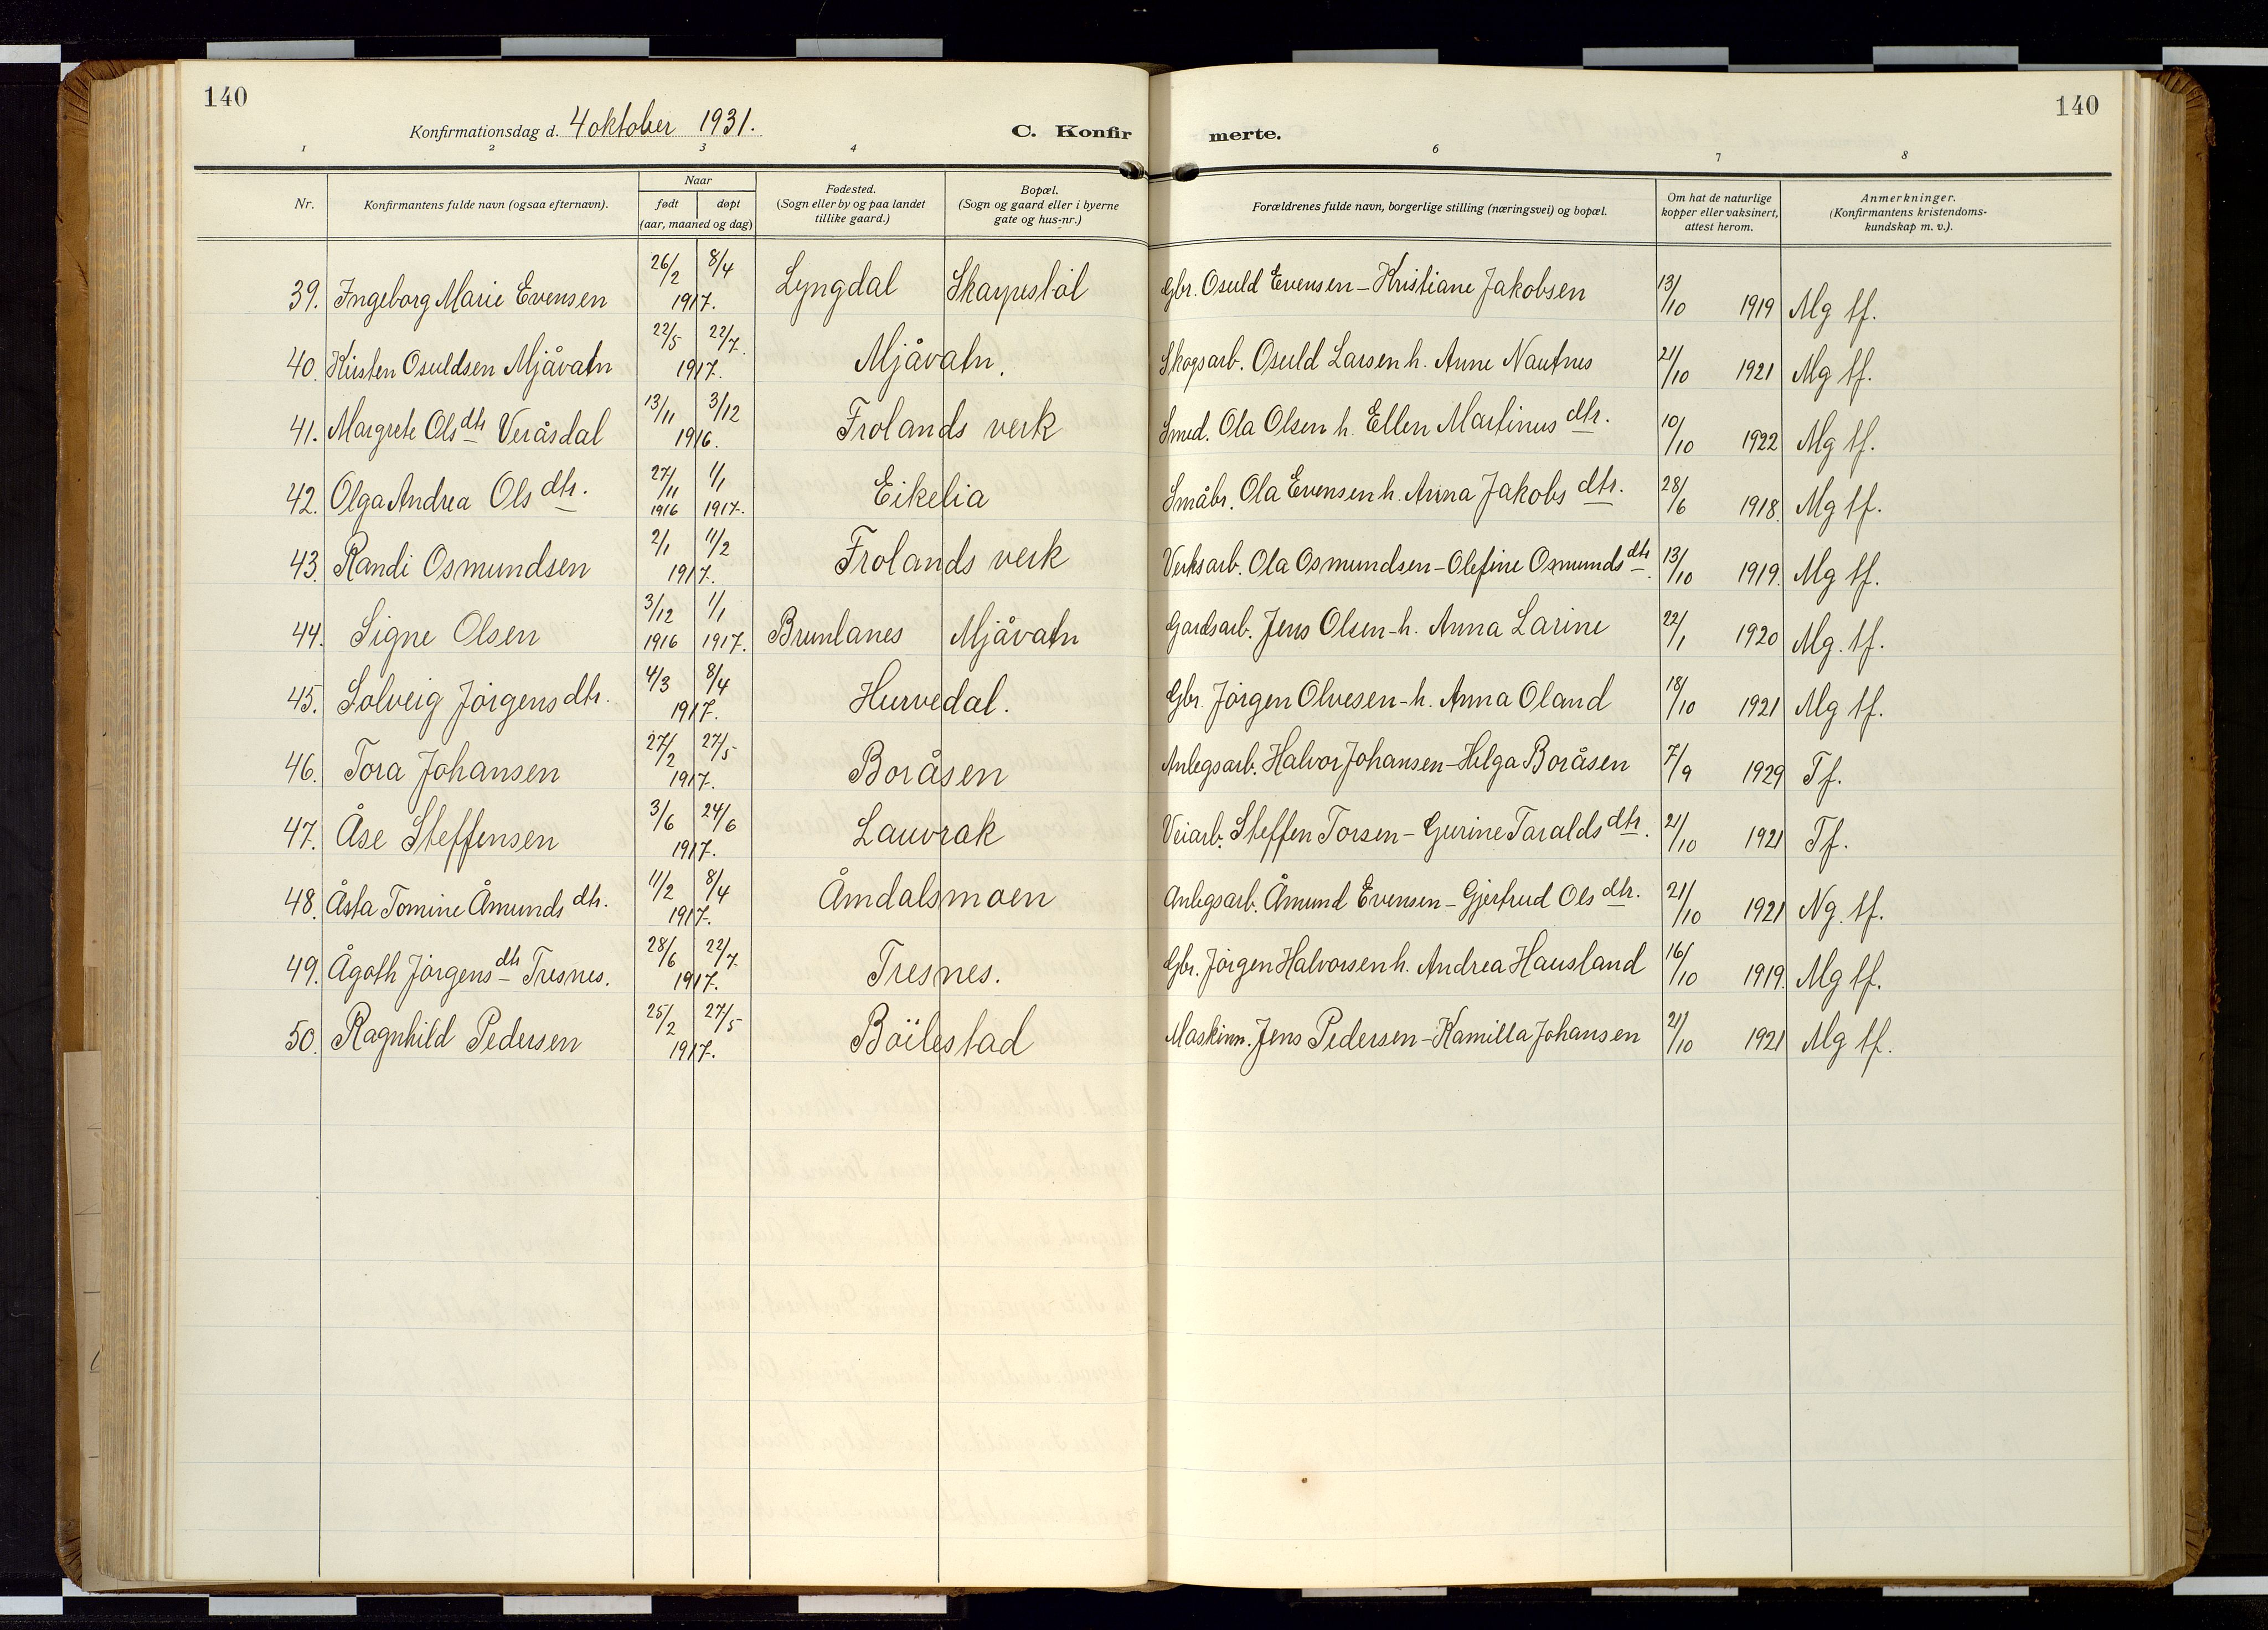 140
Konfirmationsdag d. 4 oktober 1931.
C. Konfir merte.
140
1 2 3 4 6 7 8
Nr.
Konfirmantens fulde navn (ogsaa efternavn).
Naar
født døpt
(aar, maaned og dag)
Fødested.
(Sogn eller by og paa landet
tillike gaard.)
Bopæl.
(Sogn og gaard eller i byerne
gate og hus-nr.)
Forældrenes fulde navn, borgerlige stilling (næringsvei) og bopæl.
Om hat de naturlige
kopper eller vaksinert,
attest herom.
Anmerkninger.
(Konfirmantens kristendoms-
kundskap m. v.).
39. Ingeborg Marie Evensen 26/2 8/4 1917. Lyngdal Skarpestöl Gbr. Osuld Evensen - Kristiane Jakobsen 13/10 1919 Mg tf.
40. Kirsten Osuldsen Mjåvatn 22/5 22/7. 1917. Mjåvatn. Skogsarb. Osuld Larsen h. Anne Nautnes 21/10 1921 Mg tf.
41. Margrete Olsdtr Veråsdal 13/11 3/12 1916. Frolands verk Smed. Ola Olsen h. Ellen Martinus dtr. 10/10 1922 Mg tf.
42. Olga Andrea Ols dtr. 27/11 1916 1/1 1917. Eikelia Småbr. Ola Evensen h. Anna Jakobs dtr. 28/6 1918. Mg tf.
43. Randi Osmundsen 2/1 11/2 1917. Frolands verk Verksarb. Ola Osmundsen - Olefine Osmunds dtr. 13/10 1919. Mg tf.
44. Signe Olsen 3/12 1916 1/1 1917. Brunlanes Mjåvatn Gardsarb. Jens Olsen - h. Anna Larine 22/1 1920 Mg. tf.
45. Solveig Jörgens dtr. 4/3 8/4 1917. Hurvedal. Gbr. Jörgen Olvesen - h. Anna Oland 18/10 1921 Mg tf.
46. Tora Johansen 27/2 27/5 1917. Boråsen Anlegsarb. Halvor Johansen - Helga Boråsen 7/9 1929 Tf.
47. Åse Steffensen 3/6 24/6 1917. Lauvrak Veiarb. Steffen Torsen - Gurine Taralds dtr. 21/10 1921 Tf.
48. Åsta Tomine Åmunds dtr. 11/2 8/4 1917. Åmdalsmoen Anlegsarb. Åmund Evensen - Gjertrud Ols dtr. 21/10 1921 Ng. tf.
49. Ågoth Jörgens dtr Tresnes. 28/6 22/7. 1917. Tresnes. Gbr. Jörgen Halvorsen h. Andrea Hausland 16/10 1919. Mg tf.
50. Ragnhild Pedersen 25/2 27/5 1917. Böilestad Maskinn. Jens Pedersen - Kamilla Johansen 21/10 1921 Mg tf.